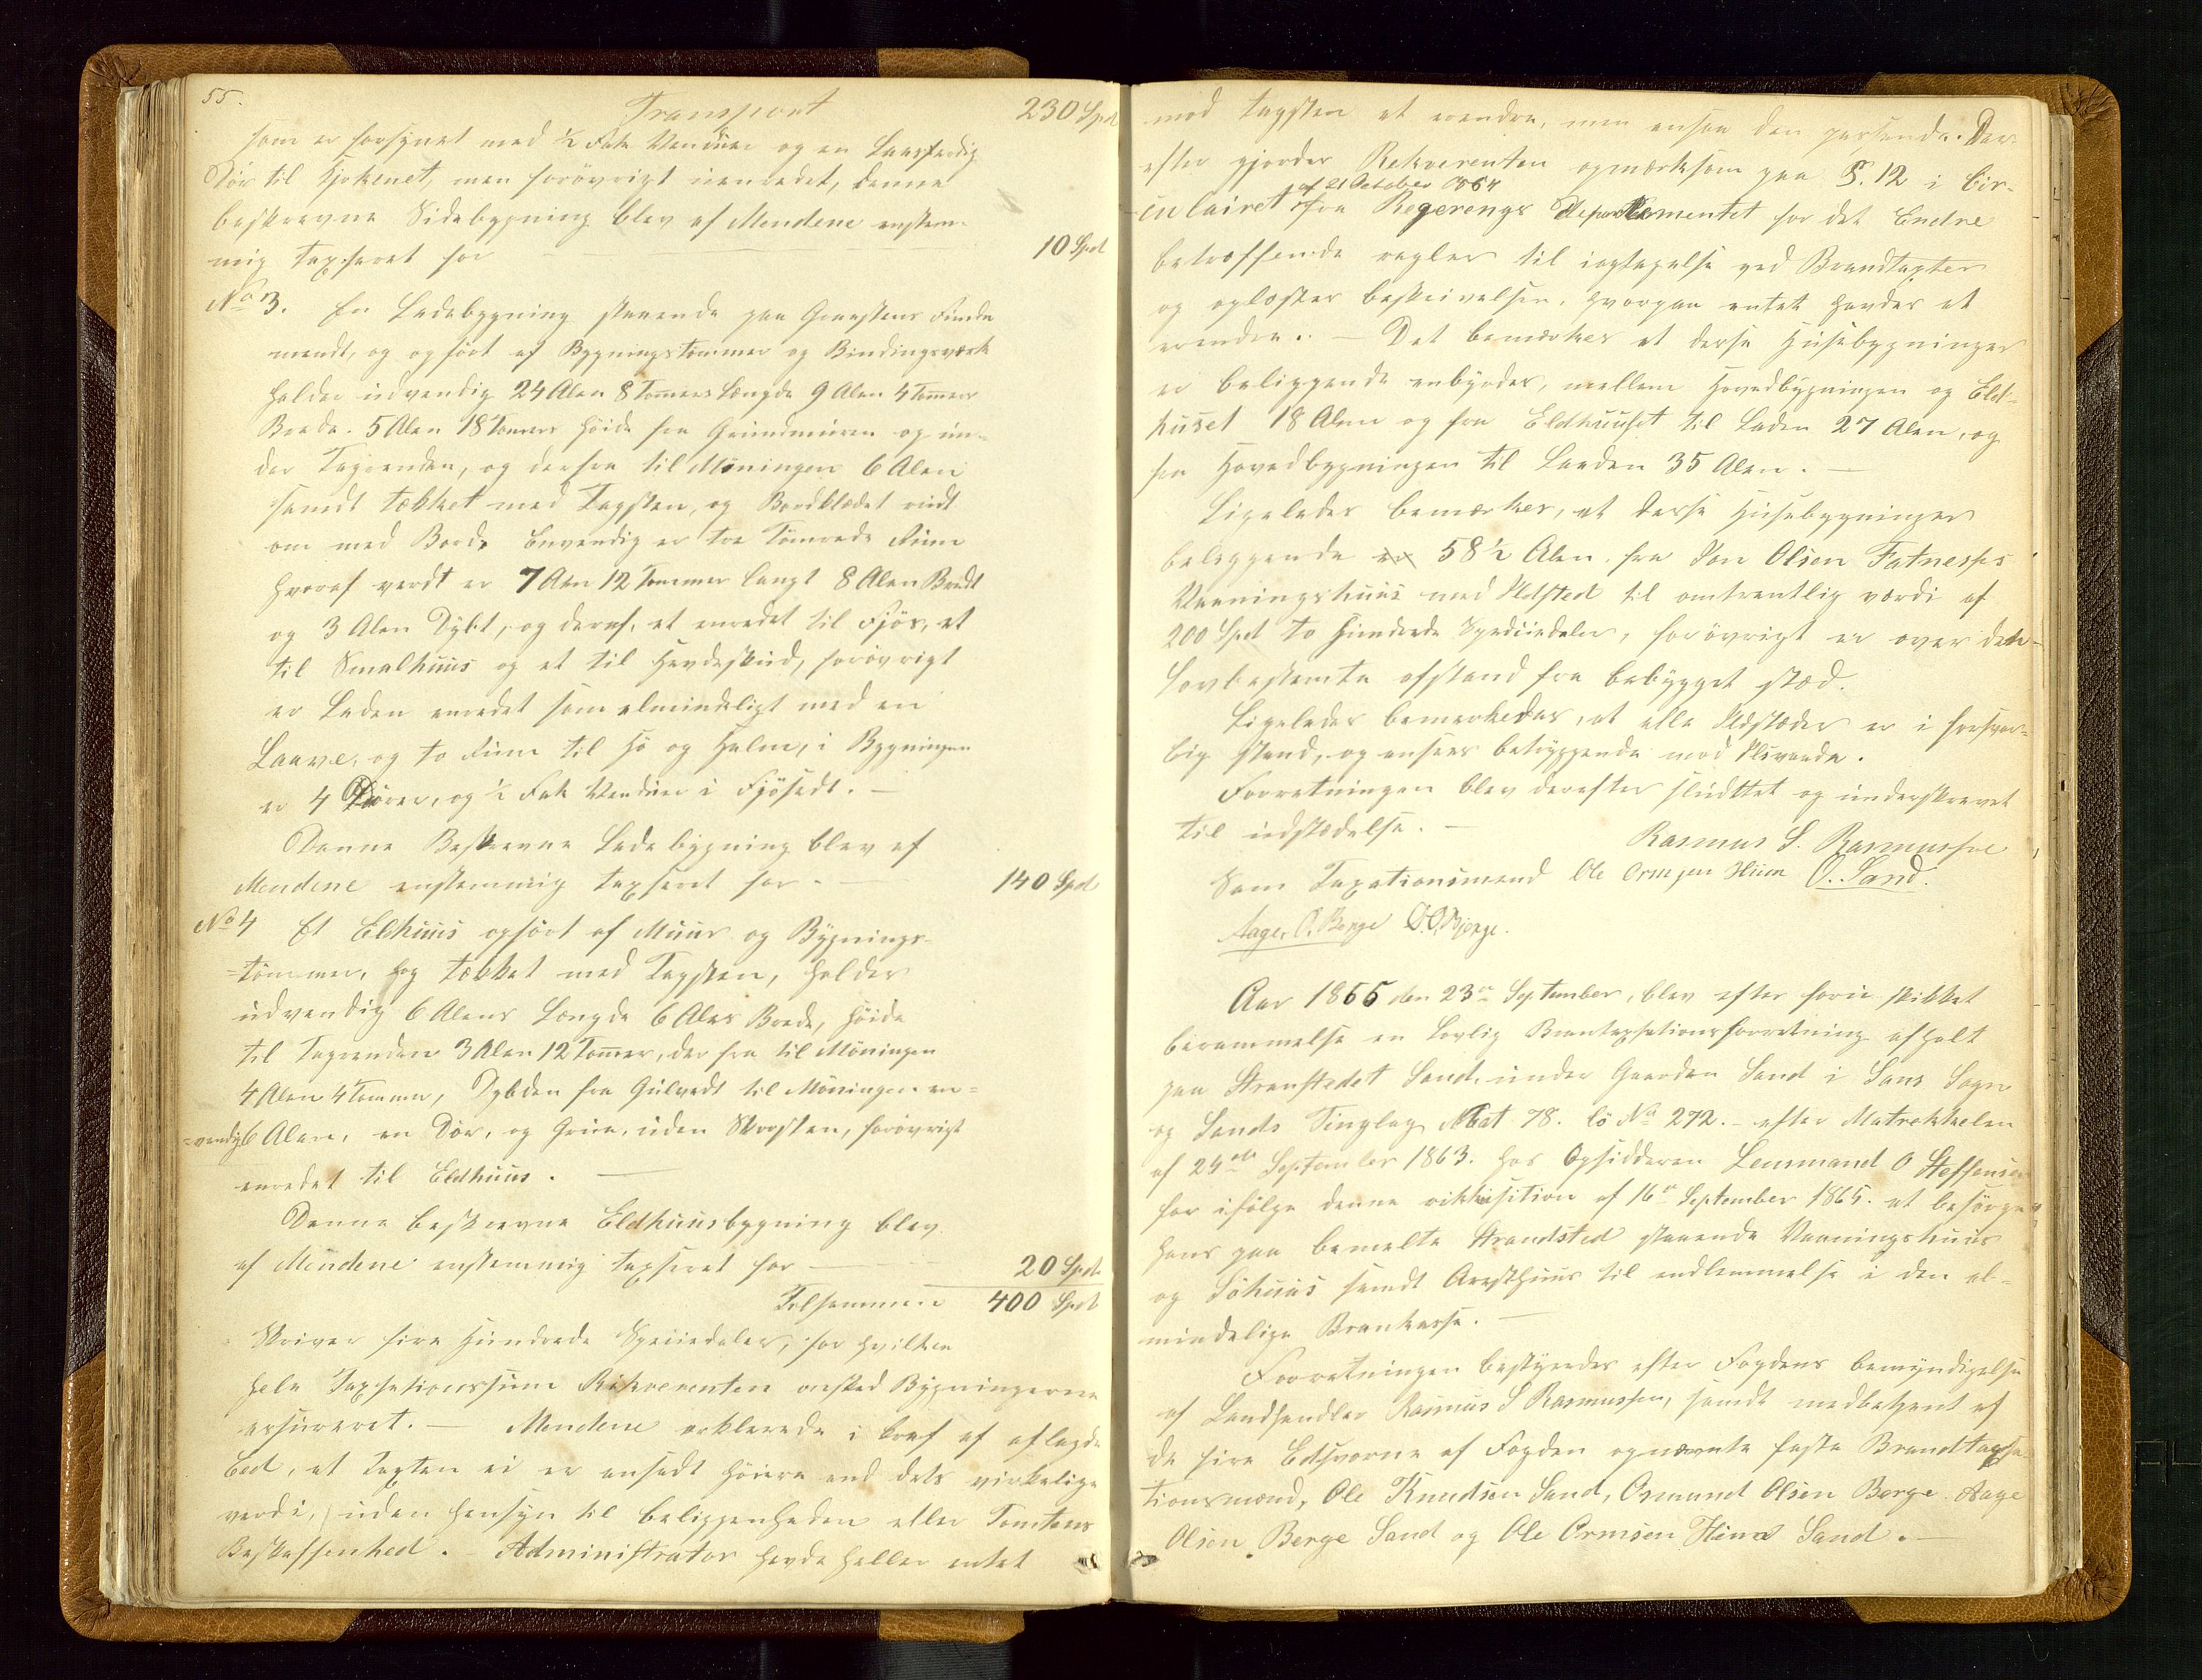 55.
Transport 230 Spd
som er forsynet med ½ Fak Venduer og en Laasfærdig
Dör til Kjøkenet, men forövrigt uenredet, denne
beskrevne Sidebygning blev af Mendene enstem-
mig taxseret for 10 Spd
No 3. En Ladebygning staaende paa Graastens Funda
mendt, og opfört af Bygningstömmer og Bindingsværk
holder udvendig 24 Alen 8 Tomers Længde 9 Alen 4 Tomers
Brede. 5 Alen 18 Tomers Höide fra Grundmuren og un-
der Tagrenden, og derfra til Möningen 6 Alen
samdt tækket med Tagsten, og Bordklædet rundt
om med Bord, Envendig er tre Tömrede Rum
hvoraf verdt er 7 Alen 12 Tommer langt 8 Alen Bredt
og 3 Alen Dybt, og deraf, et enredet til Fjös, et
til Smalhuus og et til Hevdeskud, forövrigt
er Laden enredet som almindeligt med en
Laave, og to Rum til Hö og Halm, i Bygningen
er 4 Dörer, og ½ Fak Venduer i Fjösedt. —
Denne Beskrevne Ladebygning blev af
Mendene enstemmig taxseret for 140 Spd
No 4 Et Eldhuus opfört af Muur og Bygnings-
=tömmer, og tækket med Tagsten, holder
udvendig 6 Alens Længde 6 Alen Brede, Höide
til Tagrenden 3 Alen 12 Tomer, der fra til Möningen
4 Alen 4 Tommer, Dybden fra Gulvedt til Möningen en=
=vendig 6 Alen, en Dör, og Grue, uden Skorsten, forövrigt
enredet til Eldhuus. —
Denne beskrevne Eldhuusbygning blev
af Mendene enstemmig taxseret for 20 Spd
Tilsammen 400 Spd
Skriver fire Hundrede Speciedaler, for hvilken
hele Taxsationssum Rekverenten ønsked Bygningerne
assureret. — Mendene erklerede i kraf af aflagde
Eed, at Taxten ei er ansadt höiere end dets virkelige
verdi, uden Hensyn til beliggenheden eller Tomtens
Beskaffenhed. — Administrator havde heller entet
mod taxsten at erendre, men ansaa den passende. Der-
efter gjordes Rekverenten opmærksom paa §. 12 i Cir-
culairet af 21 October 1864 fra Regerengs Departementet for det Endre
betreffende regler til iagtagelse ved Brandtaxter
og oplæstes beskrivelsen, hvorpaa entet havdes at
erendre. — Det bemærkes at desse Husebygninger
er beliggende enbyrdes, mellem Hovedbygningen og Eld-
huset 18 Alen og fra Eldhuuset til Laden 27 Alen, og
fra Hovedbygningen til Laaden 35 Alen. —
Ligeledes bemærkes, at desse Husebygninger
beliggende er 58½ Alen fra Jon Olsen Fatneses
Vaaningshuus med Ildsted til omtrentlig værdi af
200 Spd to Hundrede Speciedaler, forövrigt er over den
Lovbestemte afstand fra bebygget stæd.
Ligeledes bemerkedes, at alle Ildstæder er i forsvar=
lig stand, og ansees betryggende mod Ilsvaade.
Forretningen blev derefter sluttet og underskrevet
til udstædelse. — Rasmus S. Rasmussen
Som Taxationsmend Ole Ormsen Hiim O. Sand.
Aage O. Berge O. O. Bjerge.
Aar 1865 den 23de September, blev efter forud skikket
berammelse en Lovlig Brantaxsationsforretning afholt
paa Stranstedet Sand, under Gaarden Sand i Sans Sogn
og Sands Tinglag Mat 78. lö No 272. — efter Matrekkelen
af 24de September 1863. hos Opsidderen Lensmand O Steffensen
for ifölge denne rekkisition af 16de September 1865. at besörge
hans paa bemelte Strandsted staaende Vaaningshuus
og Söhuus samdt Aresthuus til endlemmelse i den al-
mindelige Brankasse. —
Forretningen bestyredes efter Fogdens bemyndigelse
af Landhandler Rasmus S Rasmussen, samdt medbetjent af
de fire Edsvorne af Fogden opnævnte faste Brandtaxsa
tionsmænd, Ole Knudsen Sand, Osmund Olsen Berge Aage
Olsen Berge Sand og Ole Ormsen Hiim Sand. —